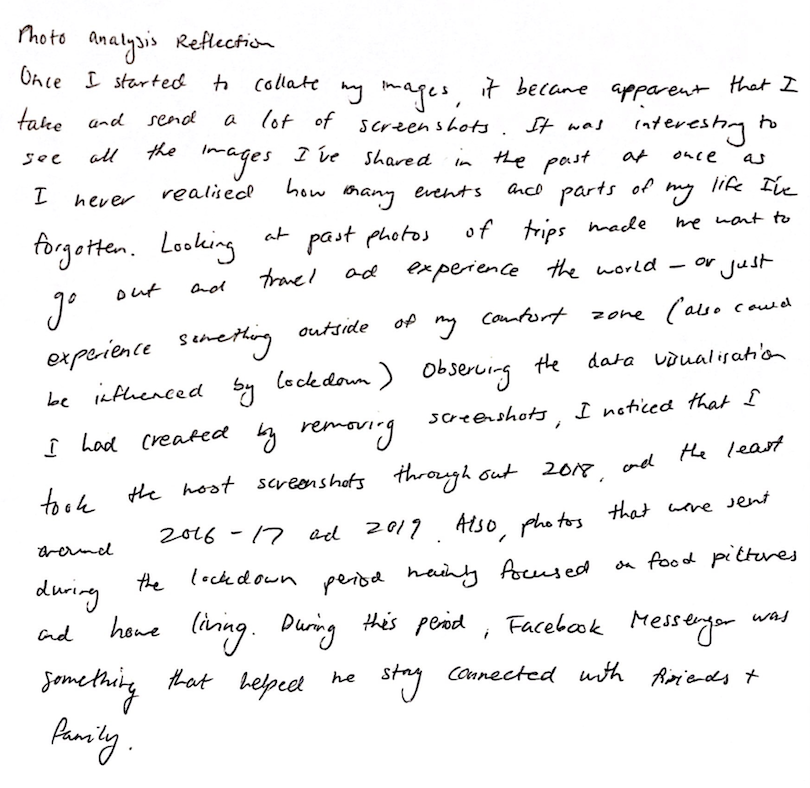 Photo analysis Reflection
Once I started to collate my images, it became apparent that I
take and send a lot of screenshots. It was interesting to
see all the images I've shared in the past at once as
I never realised how many events and parts of my life I've
forgotten. Looking at past photos of trips made me want to
go out and travel and experience the world - or just
experience something outside of my comfort zone (also could
be influenced by lockdown) Observing the data visualisation
I had created by removing screenshots, I noticed that I
took the most screenshots throughout 2018, and the least
around 2016-17 and 2019. Also, photos that were sent
during the lockdown period mainly focused on food pictures
and home living. During this period, Facebook Messenger was
something that helped me stay connected with friends +
family.